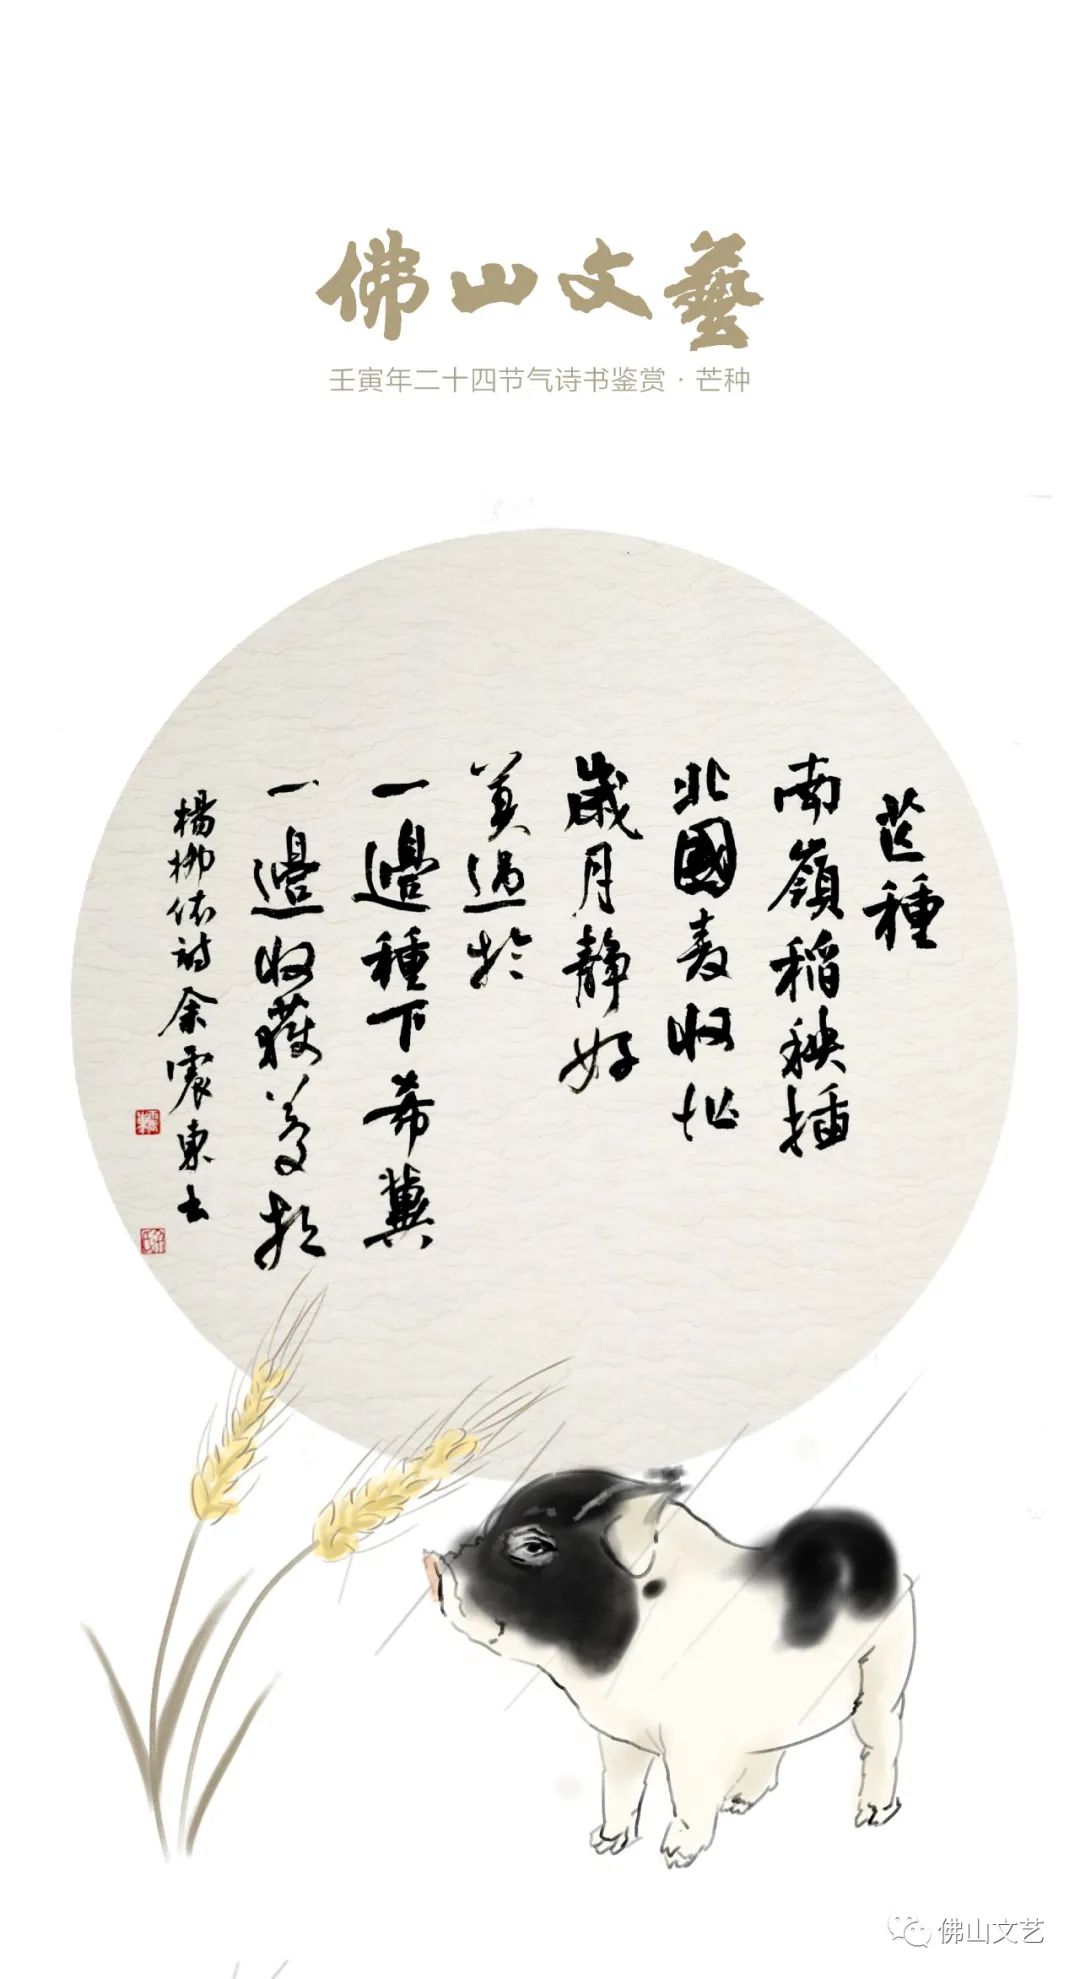 佛山文藝
壬寅年二十四节气诗书鉴赏·芒种
芒種
南嶺稻秧插
北國麥收忙
歲月靜好
莫過於
一邊種下希冀
一邊收穫
楊柳依詩余震東书
佛山文艺